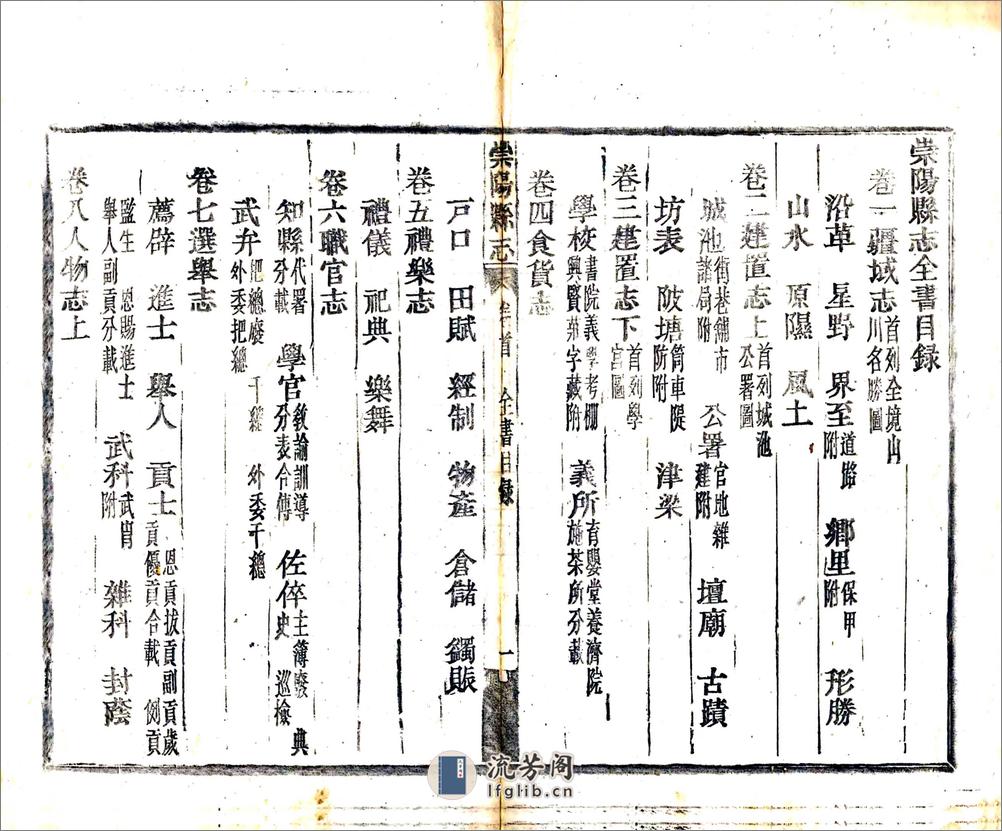 崇陽縣志全書目錄
卷一疆域志 首列全境山川名勝圖
沿革 星野 界至 道路附 鄉里 保甲附 形勝
山水 原隰 風土
卷二建置志上 首列城池公署圖
城池 街巷鋪市諸局附 公署 官地雜建附 壇廟 古蹟
坊表 陂塘 筒車隄防附 津梁
卷三建置志下 首列學宮圖
學校 書院義學考棚興賢莊字藏附 義所 育嬰堂養濟院施茶所分載
卷四食貨志
戶口 田賦 經制 物產 倉儲 蠲賑
卷五禮樂志
禮儀 祀典 樂舞
卷六職官志
知縣 代署分載 學官 教諭訓導分表合傳 佐倅 主簿廢 典史 巡檢
武弁 把總廢 千總 外委千總 外委把總
卷七選舉志
薦辟 進士 舉人 貢士 恩貢拔貢副貢歲貢優貢合載 例貢
監生 恩賜進士舉人副貢分載 武科 武胄附 雜科 封蔭
卷八人物志上
崇陽縣志 卷首 全書目錄 一
流芳阁
lfglib.cn